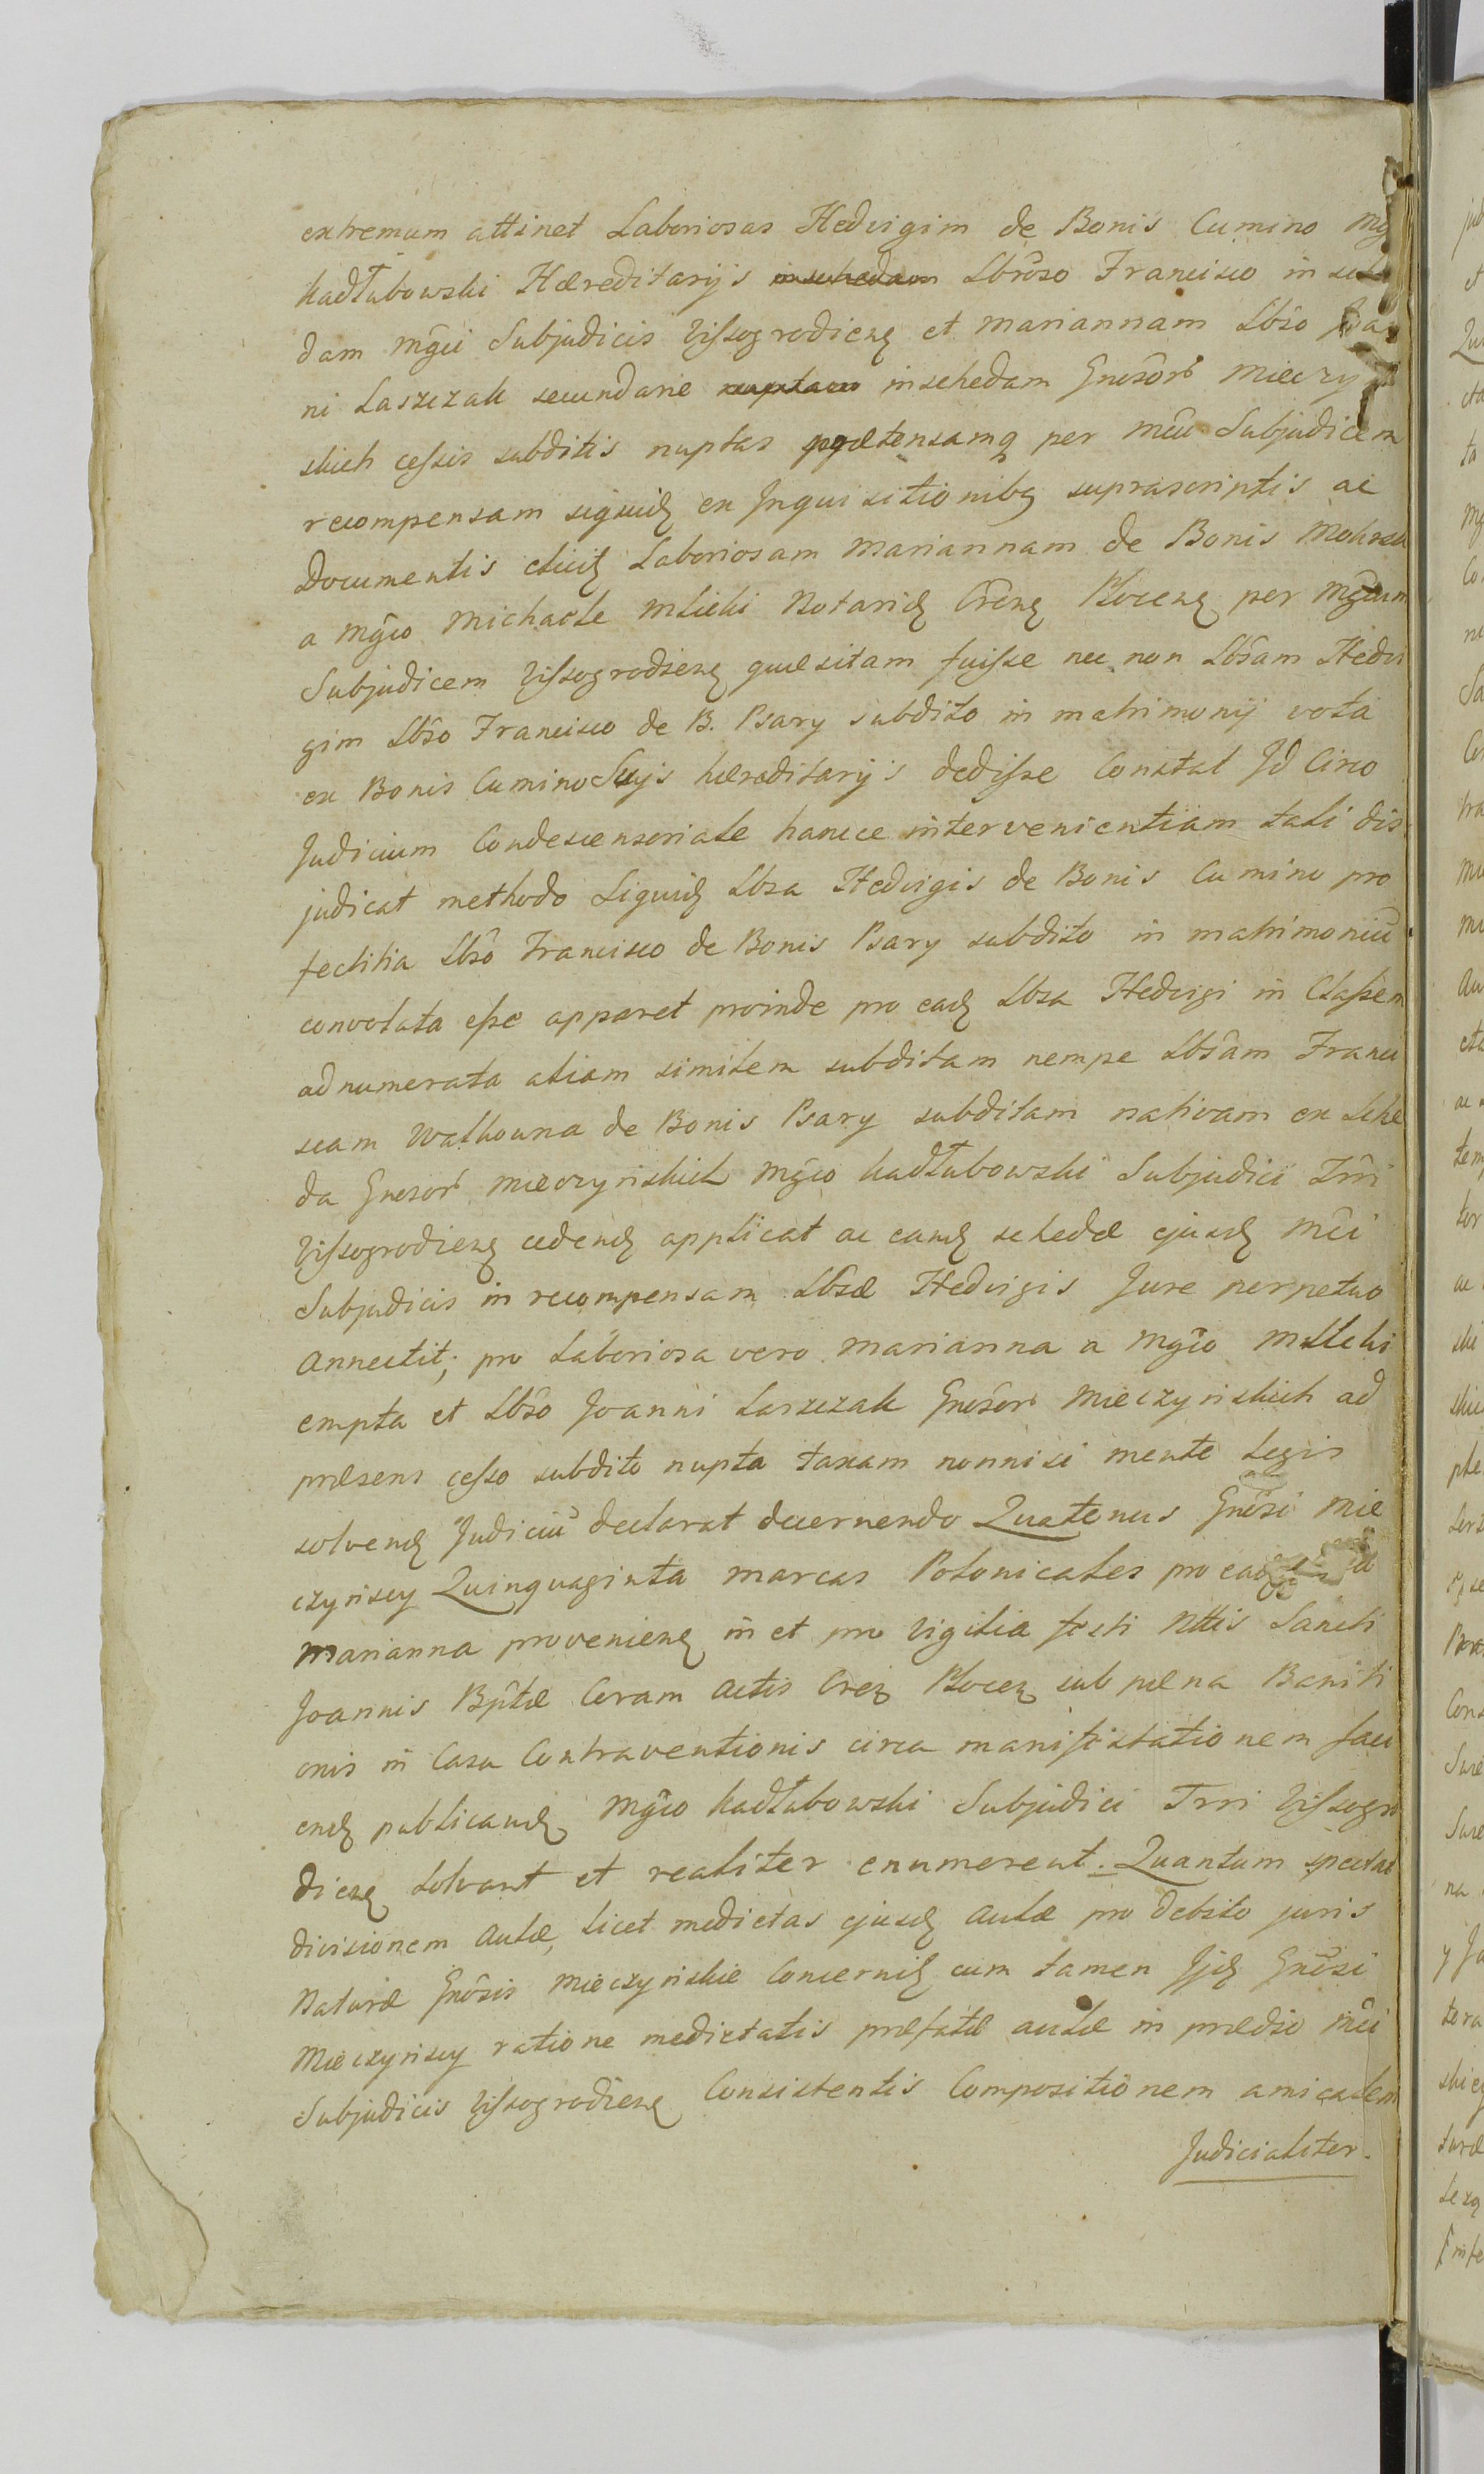 extremum attinet Laboriosas Hedvigim de Bonis Cumino Mg
Kadłubowski Hæreditarijs in schedam Lbrôso Francisco in sche
dam Mgĉi Subjudicis Vissogrodienꝫ et Mariannam Lbso Joan
ni Laszczak secundarie nuptam in schedam Gnrosôrb Mieczyń
skich cessis subditis nuptas prætensamq per Mĉu Subjudicem
recompensam siquidꝫ ex Inquisitionibꝫ suprascriptis ac
Documentis elicitꝫ Laboriosam Mariannam de Bonis
a Mgĉo Michaele Mlicki Notariꝫ Crĉnꝫ Plocenꝫ per Mgĉum
Subjudicem Vissogrodienꝫ quæsitam fuisse nec non Lbŝam Hedvi
gim Lbŝo Francisco de B. Psary subdito in matrimonij vota
ex Bonis Cumino Suijs hæreditarijs dedisse Constat Id Circo
Judicium Condescensoriale hancce intervenientiam tali dis
judicat methodo Siquidꝫ Lbsa Hedvigis de Bonis Cumino pro
fectitia Lbŝo Francisco de Bonis Psary subdito in matrimoniũ
convolata esse apparet proinde pro eadꝫ Lbsa Hedvigi in Classem
adnumerata aliam similem subditam nempe Lbŝam Franci
scam Walkowna de Bonis Psary subditam nativam ex Sche
da Gnrosorb Mieczyńskich Mgĉo Kadłubowski Subjudici Trri
Vissogrodienꝫ cedendꝫ applicat ac eandꝫ schedæ ejusdꝫ Mĉi
Subjudicis in recompensam Lbŝæ Hedvigis Jure perpetuo
Annectit; pro Laboriosa vero Marianna a Mgĉo Mlicki
empta et Lbŝo Joanni Laszczak Gnrosôrb Mieczyńskich ad
præsens cesso subdito nupta taxam nonnisi mente Legis
solvendꝫ Judiciũ declarat decernendo Quatenus Gnrôsi Mie
czyńscy Quinquaginta Marcas Polonicales pro eadꝫ
Marianna provenienꝫ in et pro Vigilia festi Nttis Sancti
Joannis Bptæ Coram Actis Creꝫ Plocenꝫ sub pæna Baniti
onis in Casu Contraventionis circa manifestationem faci
endꝫ publicandꝫ Mgĉo Kadłubowski Subjudici Trri Vissogro
dienꝫ Solvant et realiter enumerent. Quantum spectat
divisionem Aulæ, licet medietas ejusdꝫ Aulæ pro debito juris
Naturæ Gnrôsis Mieczyńskie Concernitꝫ cum tamen Ijdꝫ Gnrôsi
Mieczyńscy ratione medietatis præfatæ aulæ in prædio Mĉi
Subjudicis Vissogrodienꝫ Consistentis Compositionem amicalem
Judicialiter.